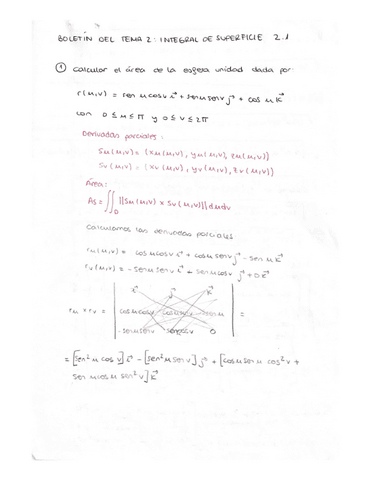 BOLETÍN DEL TEMA 2: INTEGRAL DE SUPERFICIE 2.1
① Calcular el área de la esfera unidad dada por:
r(u,v) = sen u cos v i⃗ + sen u sen v j⃗ + cos u k⃗
con 0 ≤ u ≤ π y 0 ≤ v ≤ 2π
Derivadas parciales:
Su(u,v) = (xu(u,v), yu(u,v), zu(u,v))
Sv(u,v) = (xv(u,v), yv(u,v), zv(u,v))
Área:
As = ∬D ||Su(u,v) x Sv(u,v)|| dudv
Calculamos las derivadas parciales
ru(u,v) = cos u cos v i⃗ + cos u sen v j⃗ - sen u k⃗
rv(u,v) = - sen u sen v i⃗ + sen u cos v j⃗ + 0 k⃗
i⃗ j⃗ k⃗
ru x rv = | cos u cos v cos u sen v - sen u | =
- sen u sen v sen u cos v 0
= [sen² u cos v] i⃗ - [sen² u sen v] j⃗ + [cos u sen u cos² v +
sen u cos u sen² v] k⃗